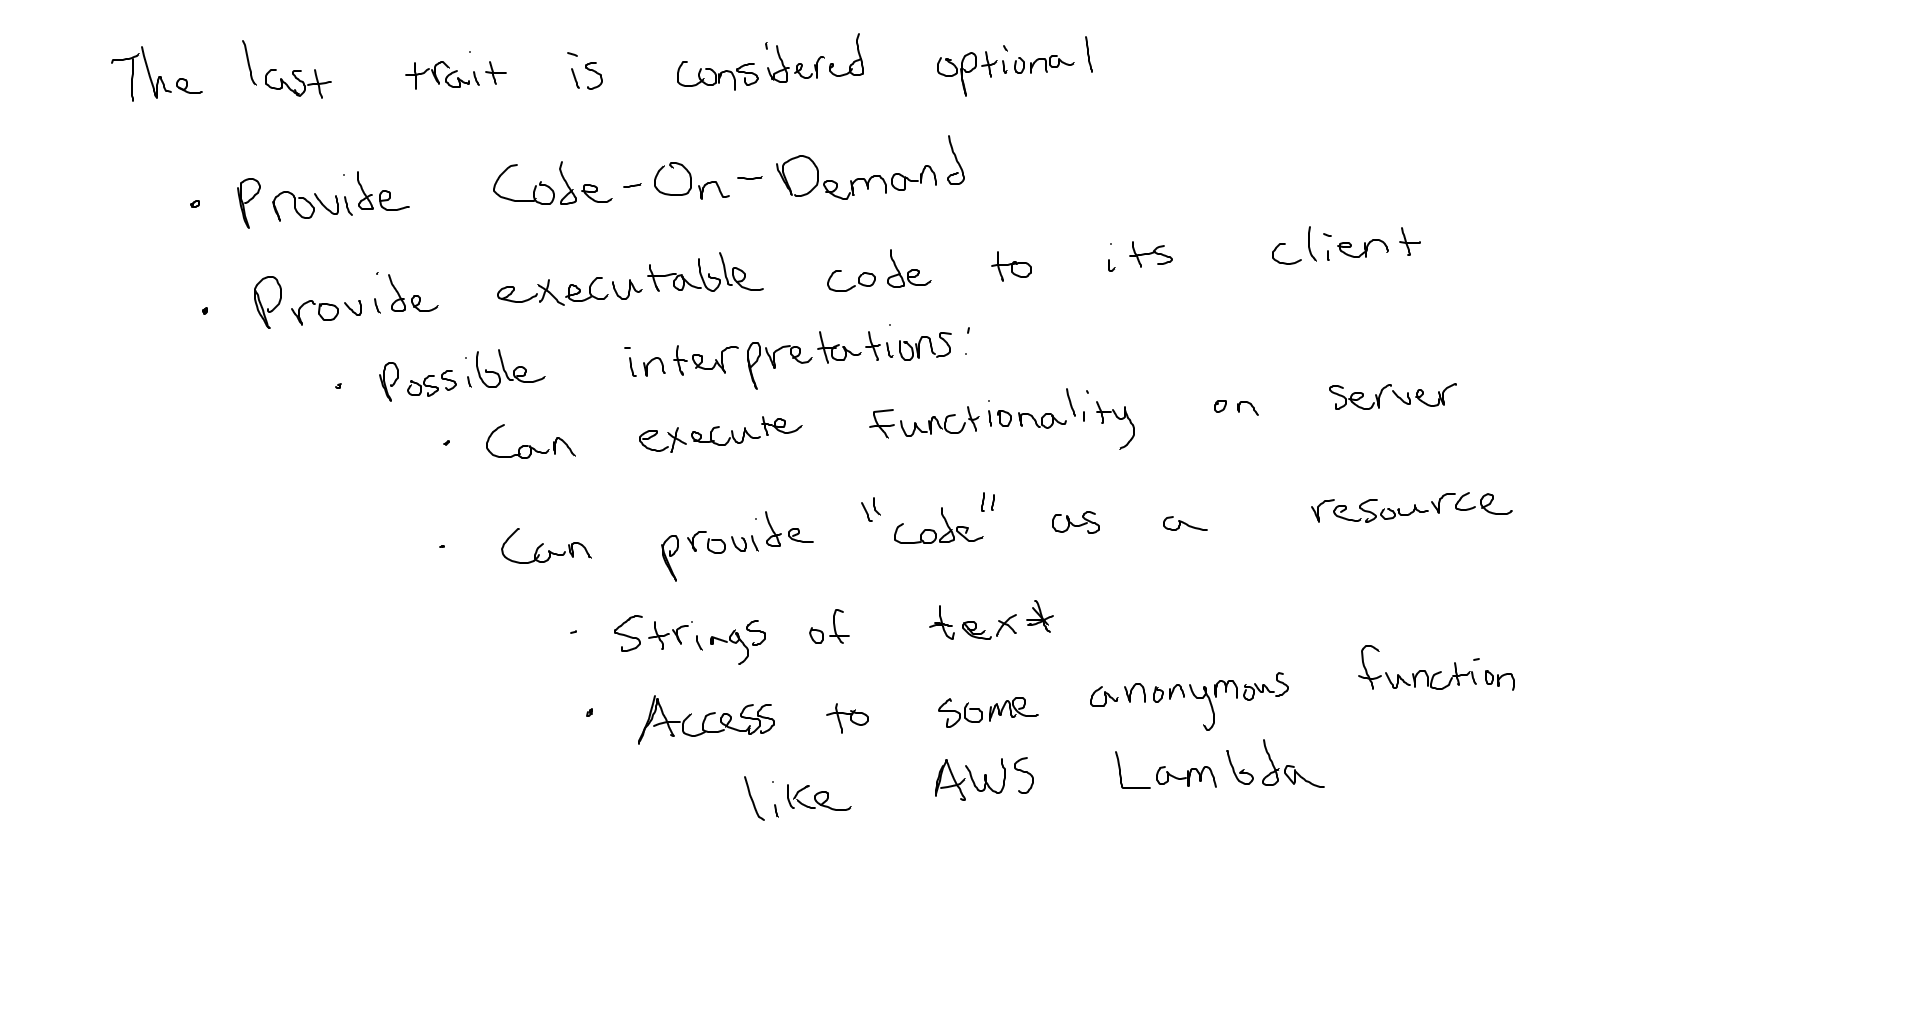 The last trait is considered optional
• Provide Code-On-Demand
• Provide executable code to its client
• Possible interpretations:
• Can execute functionality on server
• Can provide "code" as a resource
• Strings of text
• Access to some anonymous function
like AWS Lambda